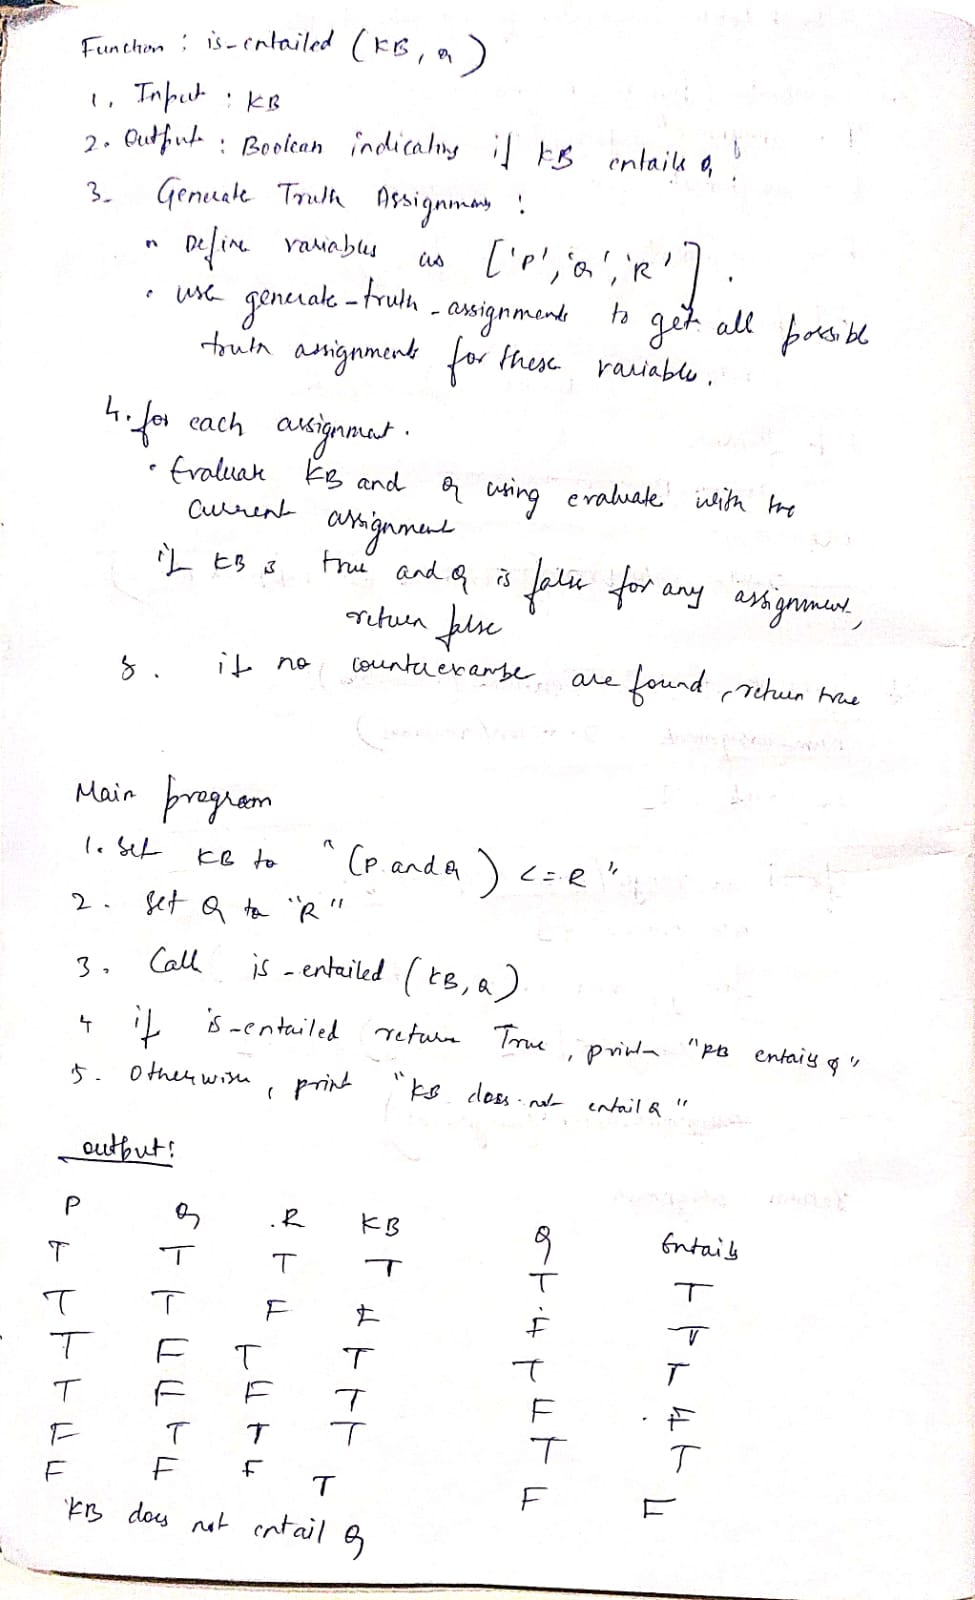 Function : is-entailed (KB, q)
1. Input : KB
2. Output : Boolean indicating if KB entails q!
3. Generate Truth Assignments :
• Define variables as ['P', 'Q', 'R'].
• use generate-truth-assignments to get all possible
truth assignments for these variable.
4. for each assignment.
• Evaluate KB and q using evaluate with the
current assignment
if KB is true and q is false for any assignment,
return false
5. if no are found, return true
Main program
1. Set KB to "(P and Q) <= R"
2. Set Q to "R"
3. Call is-entailed (KB, Q)
4 if is-entailed return True, print "KB entails q"
5. Otherwise, print "KB does not entail Q"
output:
P Q R KB q Entails
T T T T T T
T T F F F T
T F T T T T
T F F T F F
F T T T T T
F F F T F F
KB does not entail Q